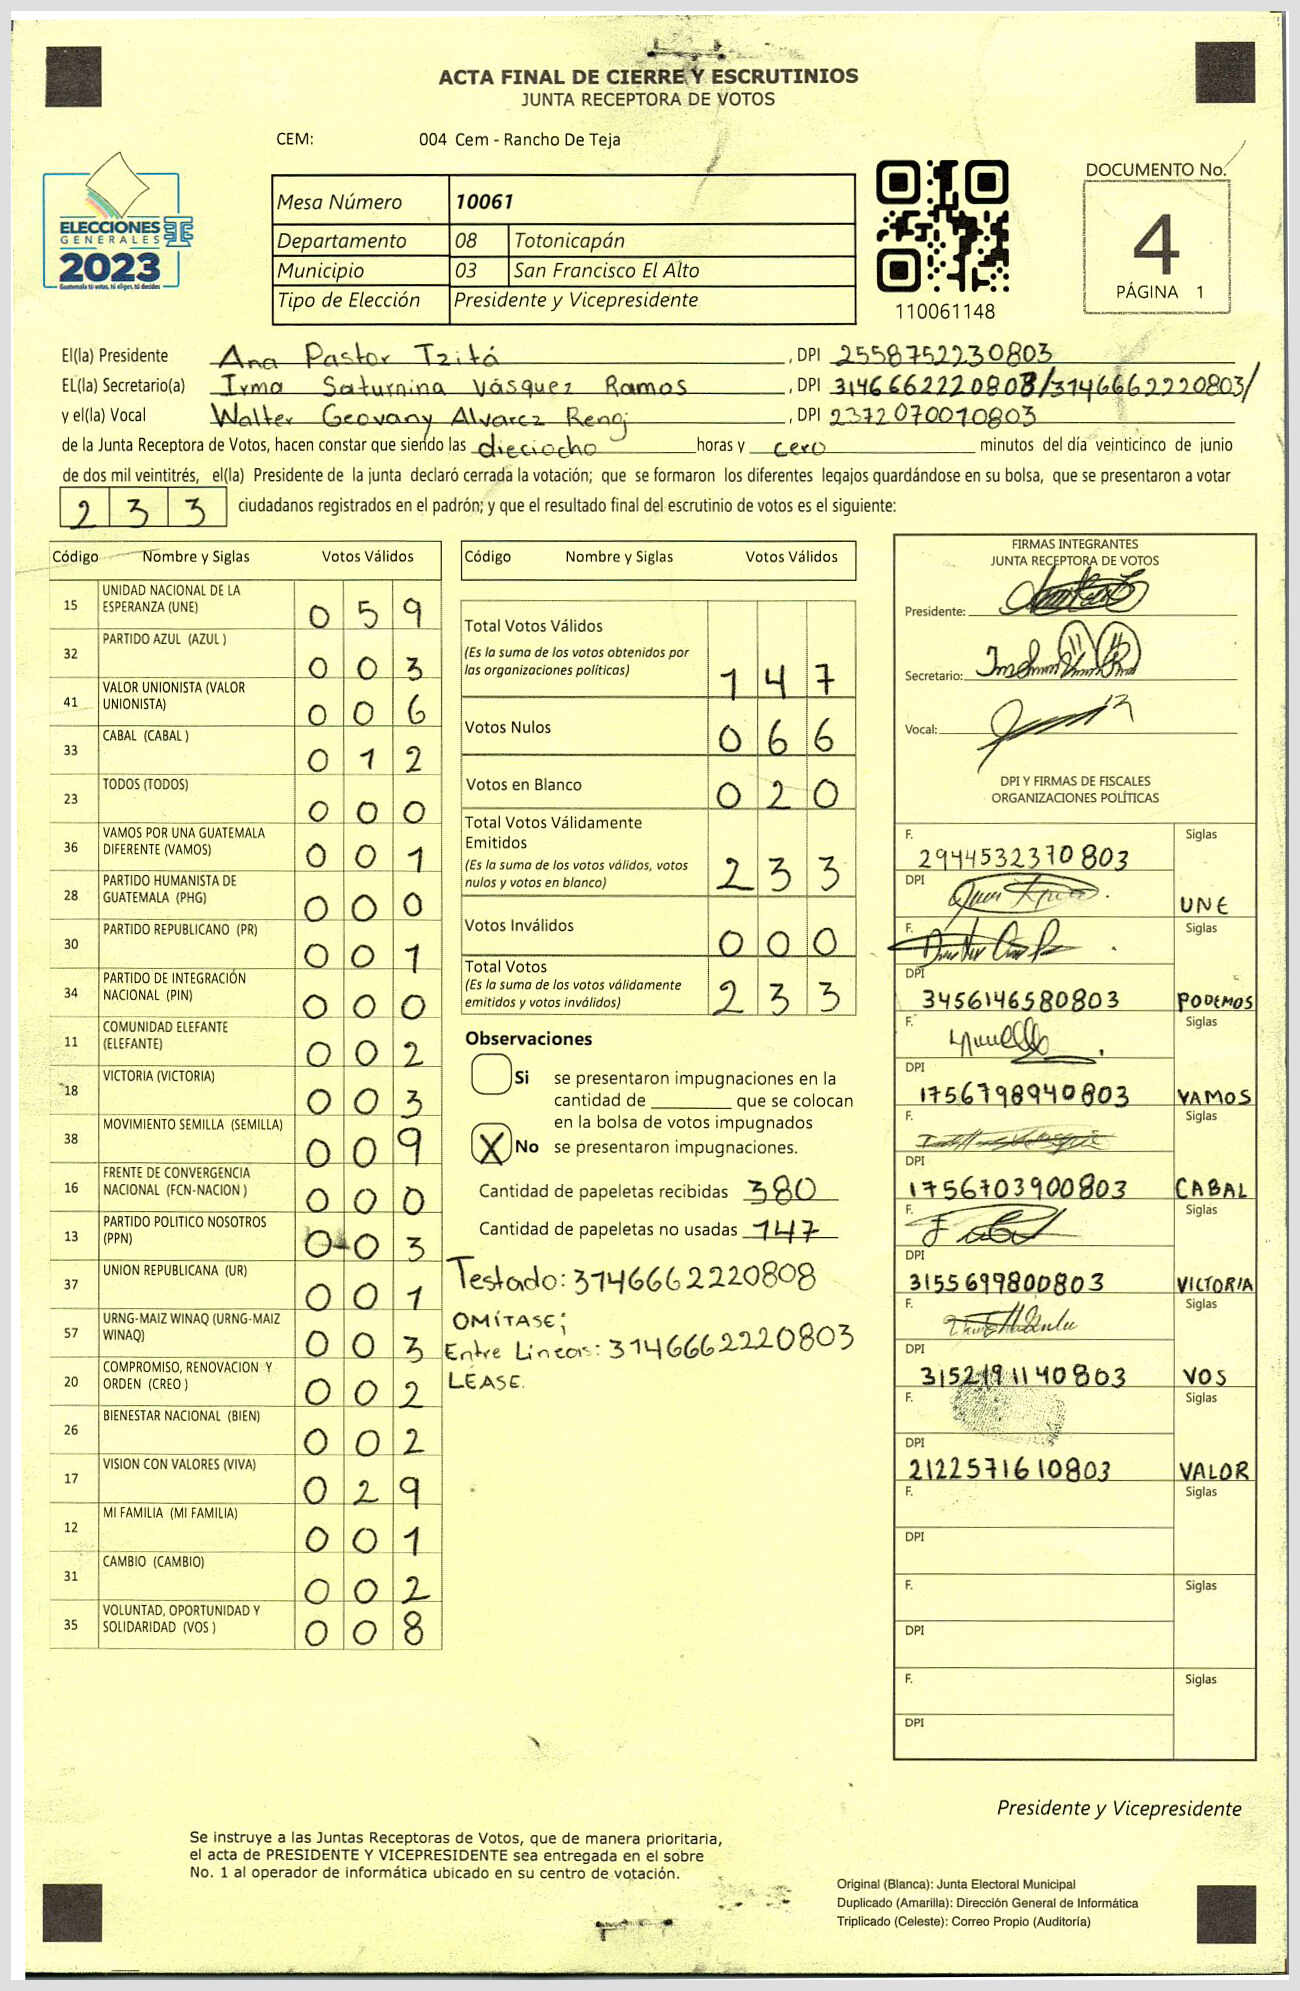 ACTA FINAL DE CIERRE Y ESCRUTINIOS
JUNTA RECEPTORA DE VOTOS
CEM: 004 Cem - Rancho De Teja
ELECCIONES
GENERALES
2023
Guatemala tú votas, tú eliges, tú decides
Mesa Número 10061
Departamento 08 Totonicapán
Municipio 03 San Francisco El Alto
Tipo de Elección Presidente y Vicepresidente
110061148
DOCUMENTO No.
4
PÁGINA 1
El(la) Presidente Ana Pastor Tzitá , DPI 2558752230803
EL(la) Secretario(a) Irma Saturnina Vásquez Ramos , DPI 3146662220808/3146662220803/
y el(la) Vocal Walter Geovany Alvarez Renoj , DPI 2372070010803
de la Junta Receptora de Votos, hacen constar que siendo las dieciocho horas y cero minutos del día veinticinco de junio
de dos mil veintitrés, el(la) Presidente de la junta declaró cerrada la votación; que se formaron los diferentes legajos guardándose en su bolsa, que se presentaron a votar
233 ciudadanos registrados en el padrón; y que el resultado final del escrutinio de votos es el siguiente:
Código Nombre y Siglas Votos Válidos
15 UNIDAD NACIONAL DE LA ESPERANZA (UNE) 0 5 9
32 PARTIDO AZUL (AZUL ) 0 0 3
41 VALOR UNIONISTA (VALOR UNIONISTA) 0 0 6
33 CABAL (CABAL ) 0 1 2
23 TODOS (TODOS) 0 0 0
36 VAMOS POR UNA GUATEMALA DIFERENTE (VAMOS) 0 0 1
28 PARTIDO HUMANISTA DE GUATEMALA (PHG) 0 0 0
30 PARTIDO REPUBLICANO (PR) 0 0 1
34 PARTIDO DE INTEGRACIÓN NACIONAL (PIN) 0 0 0
11 COMUNIDAD ELEFANTE (ELEFANTE) 0 0 2
18 VICTORIA (VICTORIA) 0 0 3
38 MOVIMIENTO SEMILLA (SEMILLA) 0 0 9
16 FRENTE DE CONVERGENCIA NACIONAL (FCN-NACION ) 0 0 0
13 PARTIDO POLITICO NOSOTROS (PPN) 0 0 3
37 UNION REPUBLICANA (UR) 0 0 1
57 URNG-MAIZ WINAQ (URNG-MAIZ WINAQ) 0 0 3
20 COMPROMISO, RENOVACION Y ORDEN (CREO ) 0 0 2
26 BIENESTAR NACIONAL (BIEN) 0 0 2
17 VISION CON VALORES (VIVA) 0 2 9
12 MI FAMILIA (MI FAMILIA) 0 0 1
31 CAMBIO (CAMBIO) 0 0 2
35 VOLUNTAD, OPORTUNIDAD Y SOLIDARIDAD (VOS ) 0 0 8
Código Nombre y Siglas Votos Válidos
Total Votos Válidos
(Es la suma de los votos obtenidos por
las organizaciones políticas) 1 4 7
Votos Nulos 0 6 6
Votos en Blanco 0 2 0
Total Votos Válidamente
Emitidos
(Es la suma de los votos válidos, votos
nulos y votos en blanco) 2 3 3
Votos Inválidos 0 0 0
Total Votos
(Es la suma de los votos válidamente
emitidos y votos inválidos) 2 3 3
Observaciones
Si se presentaron impugnaciones en la
cantidad de ________ que se colocan
en la bolsa de votos impugnados
X No se presentaron impugnaciones.
Cantidad de papeletas recibidas 380
Cantidad de papeletas no usadas 147
Testado: 3146662220808
OMÍTASE;
Entre Lineas: 3146662220803
LÉASE.
FIRMAS INTEGRANTES
JUNTA RECEPTORA DE VOTOS
Presidente:
Secretario:
Vocal:
DPI Y FIRMAS DE FISCALES
ORGANIZACIONES POLÍTICAS
F. 2944532370803 Siglas
DPI UNE
F. Siglas
DPI 3456146580803 PODEMOS
F. Siglas
DPI 1756798940803 VAMOS
F. Siglas
DPI 1756703900803 CABAL
F. Siglas
DPI 3155699800803 VICTORIA
F. Siglas
DPI 3152191140803 VOS
F. Siglas
DPI 2122571610803 VALOR
F. Siglas
DPI
F. Siglas
DPI
F. Siglas
DPI
Presidente y Vicepresidente
Se instruye a las Juntas Receptoras de Votos, que de manera prioritaria,
el acta de PRESIDENTE Y VICEPRESIDENTE sea entregada en el sobre
No. 1 al operador de informática ubicado en su centro de votación.
Original (Blanca): Junta Electoral Municipal
Duplicado (Amarilla): Dirección General de Informática
Triplicado (Celeste): Correo Propio (Auditoría)